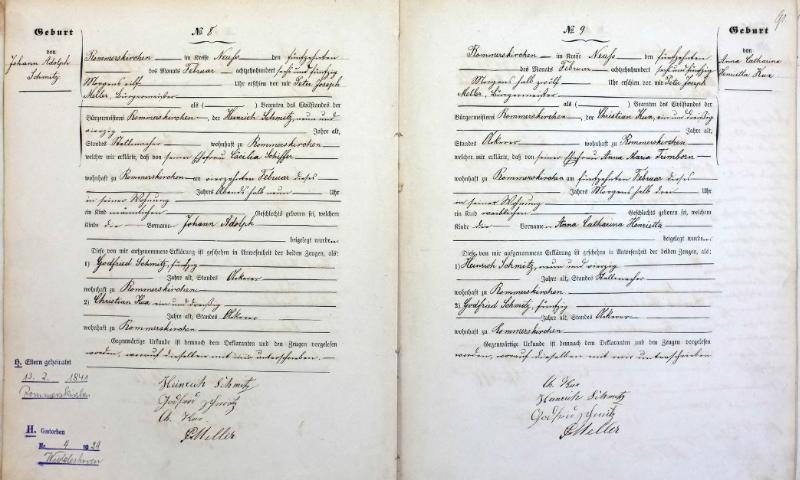 Geburt
von
Johann Adolph
Schmitz
№ 8
Rommerskirchen im Kreise Neuss den fünfzehnten
des Monats Februar achtzehnhundert sechs und fünfzig
Morgens elf Uhr erschien vor mir Peter Joseph
Meller, Bürgermeister
als ( ) Beamten des Civilstandes der
Bürgermeisterei Rommerskirchen, der Heinrich Schmitz, neun und
vierzig Jahre alt,
Standes Stellmacher wohnhaft zu Rommerskirchen
welcher mir erklärte, daß von seiner Ehefrau Cäcilia Schiffer
wohnhaft zu Rommerskirchen am vierzehnten Februar dieses
Jahres Abends halb neun Uhr
in seiner Wohnung
ein Kind männlichen Geschlechts geboren sei, welchem
Kinde die Vorname Johann Adolph
beigelegt wurden.
Diese von mir aufgenommene Erklärung ist geschehen in Anwesenheit der beiden Zeugen, als:
1) Godfried Schmitz, fünfzig
Jahre alt, Standes Ackerer
wohnhaft zu Rommerskirchen
2) Christian Kux ein und dreißig
Jahre alt, Standes Ackerer
wohnhaft zu Rommerskirchen
Gegenwärtige Urkunde ist demnach dem Deklaranten und den Zeugen vorgelesen
worden, worauf dieselben mit mir unterschrieben.
Heinrich Schmitz
Godfried Schmitz
Ch. Kux.
PMeller
H. Eltern geheiratet
13. 2. 1841
Rommerskirchen
H. Gestorben
Nr. 4 1929
90
Geburt
von
Anna Catharina
Henriette Kux
№ 9
Rommerskirchen im Kreise Neuss den fünfzehnten
des Monats Februar achtzehnhundert sechs und fünfzig
Morgens halb zwölf Uhr erschien vor mir Peter Joseph
Meller, Bürgermeister
als ( ) Beamten des Civilstandes der
Bürgermeisterei Rommerskirchen, der Christian Kux, ein und dreißig
Jahre alt,
Standes Ackerer wohnhaft zu Rommerskirchen
welcher mir erklärte, daß von seiner Ehefrau Anna Maria
wohnhaft zu Rommerskirchen am fünfzehnten Februar dieses
Jahres Morgens halb drei Uhr
in seiner Wohnung
ein Kind weiblichen Geschlechts geboren sei, welchem
Kinde die Vorname Anna Catharina Henrietta
beigelegt wurden.
Diese von mir aufgenommene Erklärung ist geschehen in Anwesenheit der beiden Zeugen, als:
1) Heinrich Schmitz, neun und vierzig
Jahre alt, Standes Stellmacher
wohnhaft zu Rommerskirchen
2) Godfried Schmitz, fünfzig
Jahre alt, Standes Ackerer
wohnhaft zu Rommerskirchen
Gegenwärtige Urkunde ist demnach dem Deklaranten und den Zeugen vorgelesen
worden, worauf dieselben mit mir unterschrieben
Ch. Kux
Heinrich Schmitz
Godfried Schmitz
PMeller